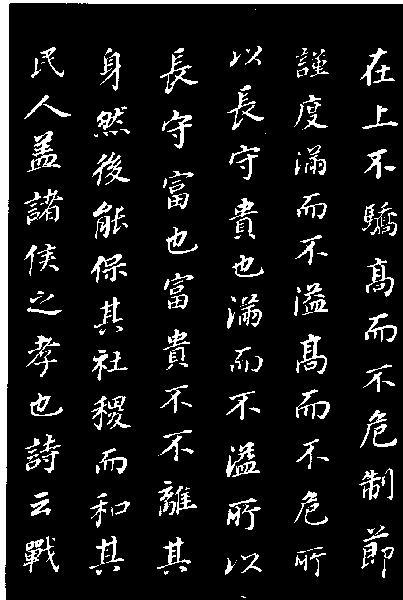 在上不驕高而不危制節
謹度滿而不溢高而不危所
以長守貴也滿而不溢所以
長守富也富貴不不離其
身然後能保其社稷而和其
民人盖諸侯之孝也詩云戰